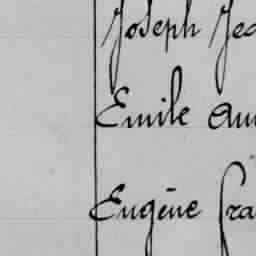 Joseph Jea
Emile Au
Eugène Fra